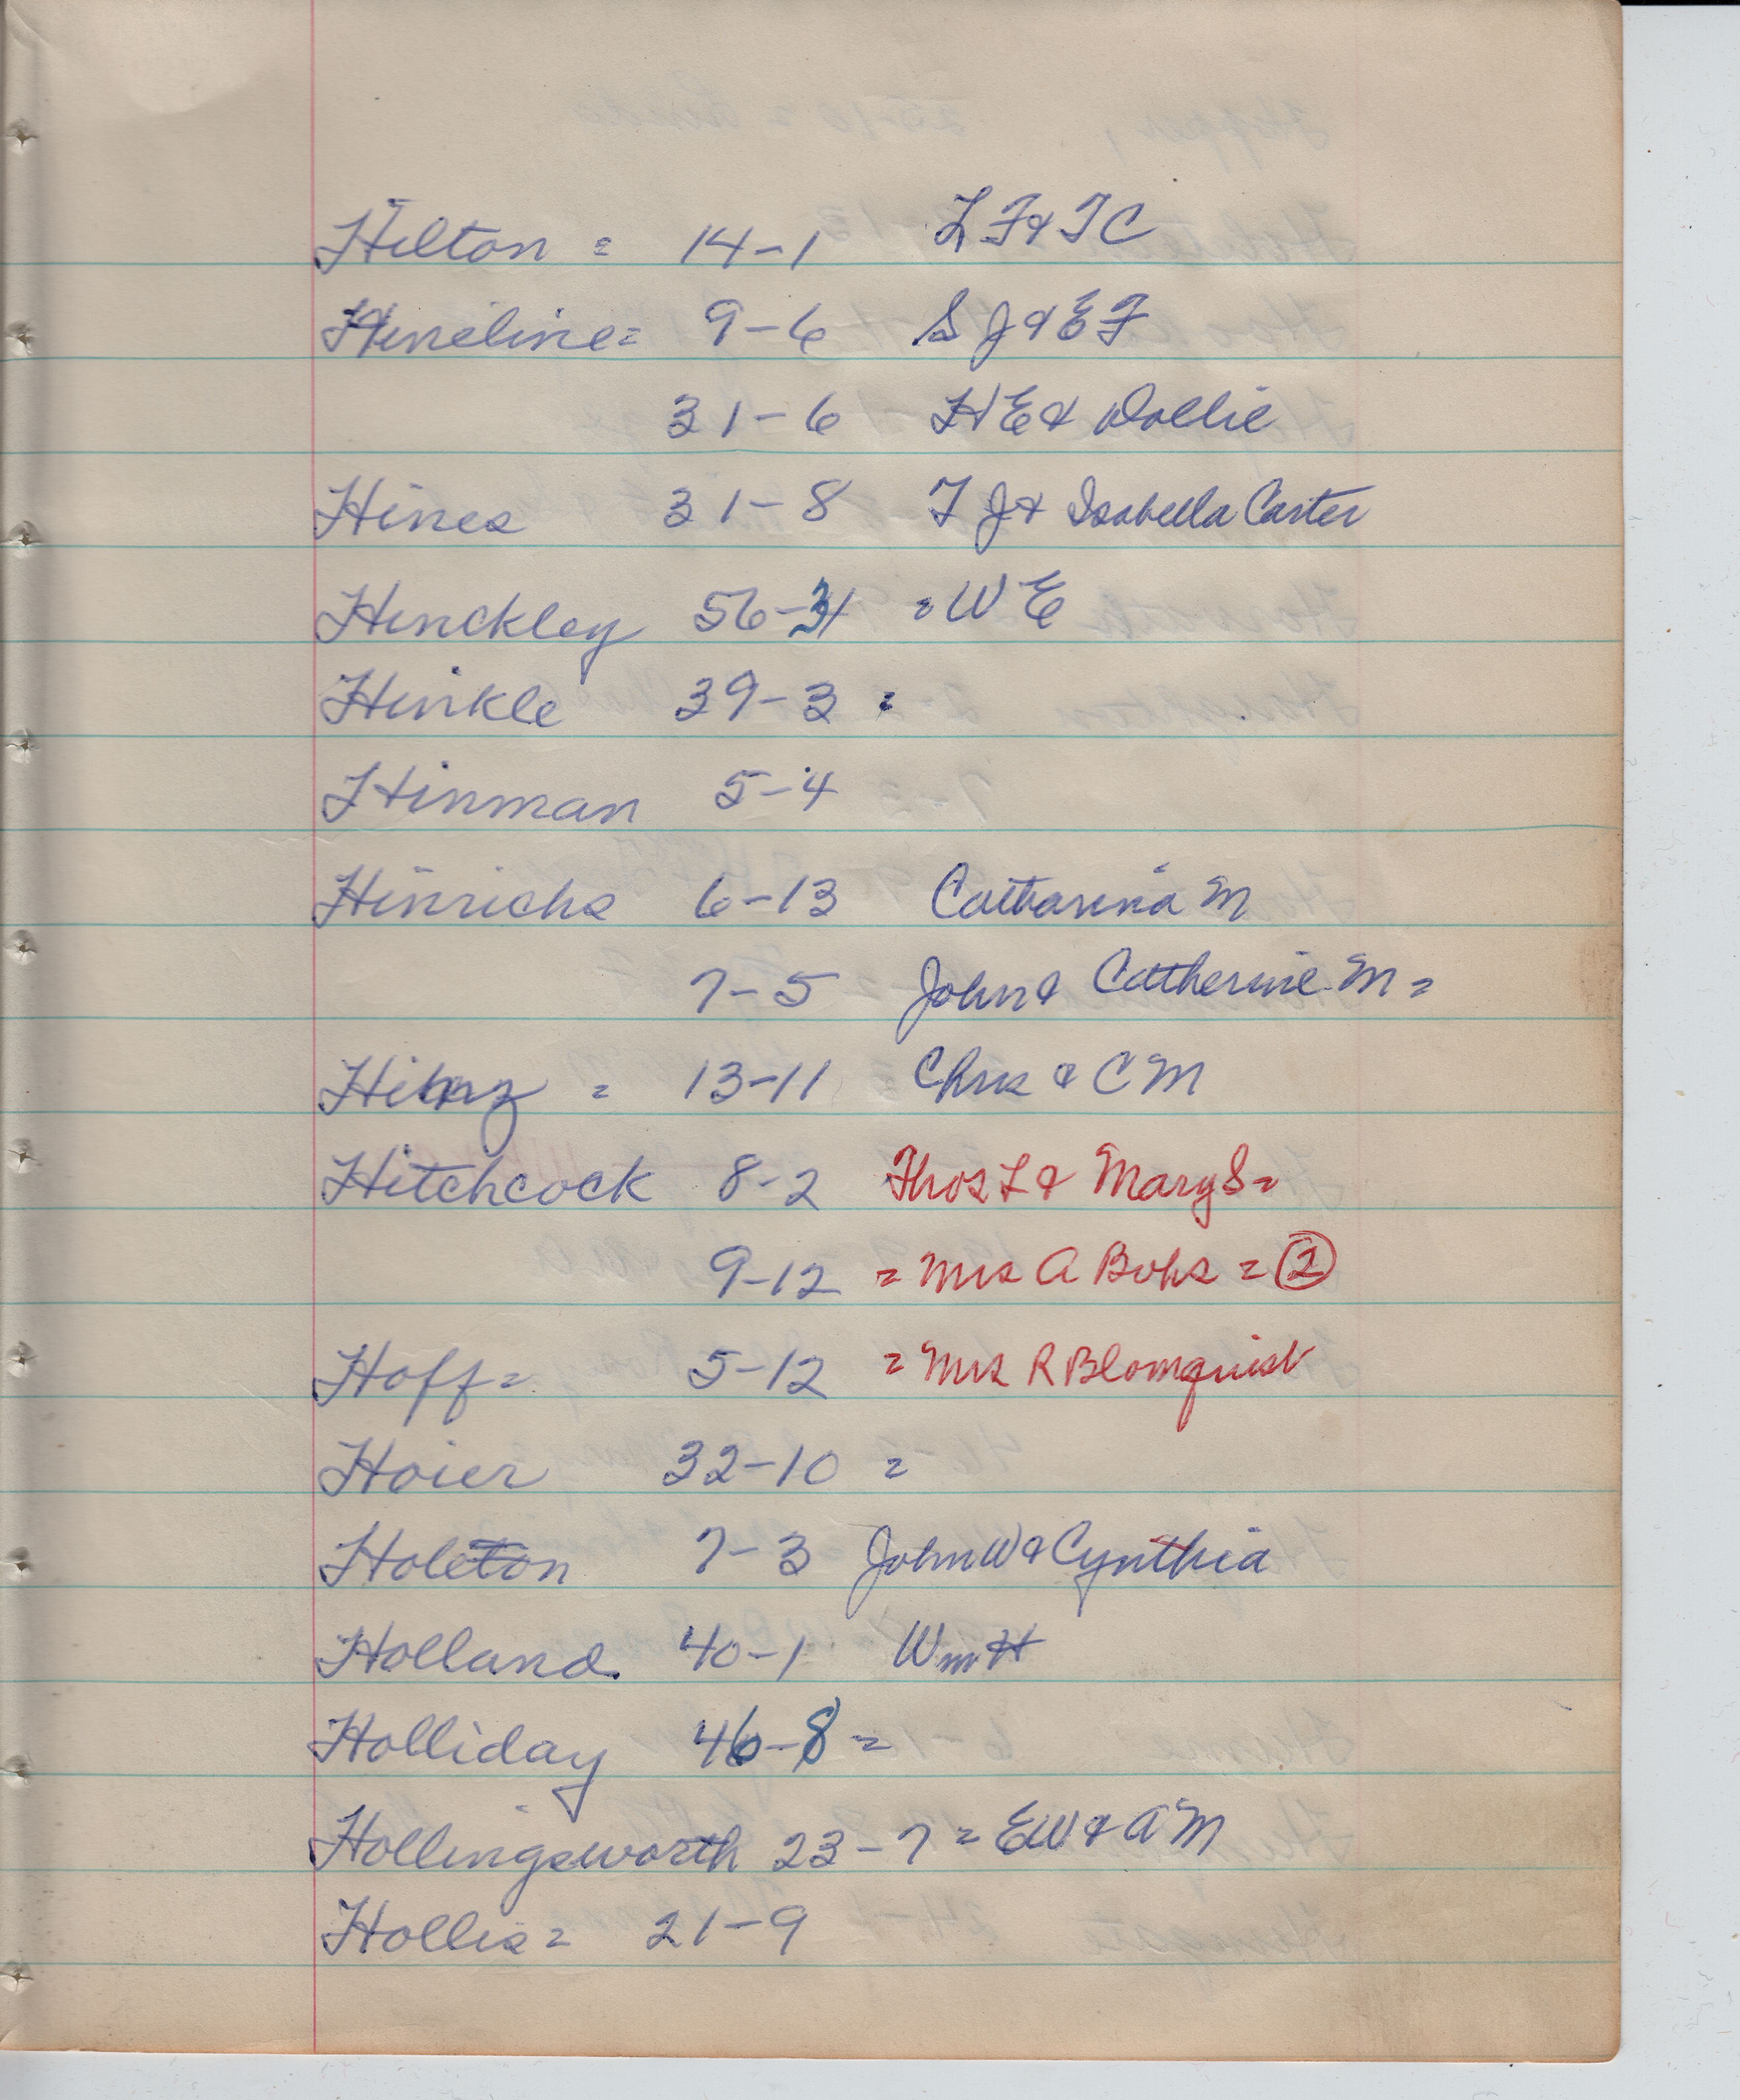 Hilton = 14-1 L F & T C
Hineline = 9-6 S J & E F
31-6 H E & Dollie
Hines 31-8 T J & Isabella Carter
Hinckley 56-31 = W E
Hinkle 39-3 =
Hinman 5-4
Hinrichs 6-13 Catharina M
7-5 John & Catherine M =
Hinz = 13-11 Chris & C M
Hitchcock 8-2 Thos L & Mary S =
9-12 = Mrs A Bohs = 2
Hoff = 5-12 = Mrs R Blomquist
Hoier 32-10 =
Holeton 7-3 John W & Cynthia
Holland 40-1 Wm H
Holliday 46-8 =
Hollingsworth 23-7 = E W & A M
Hollis = 21-9